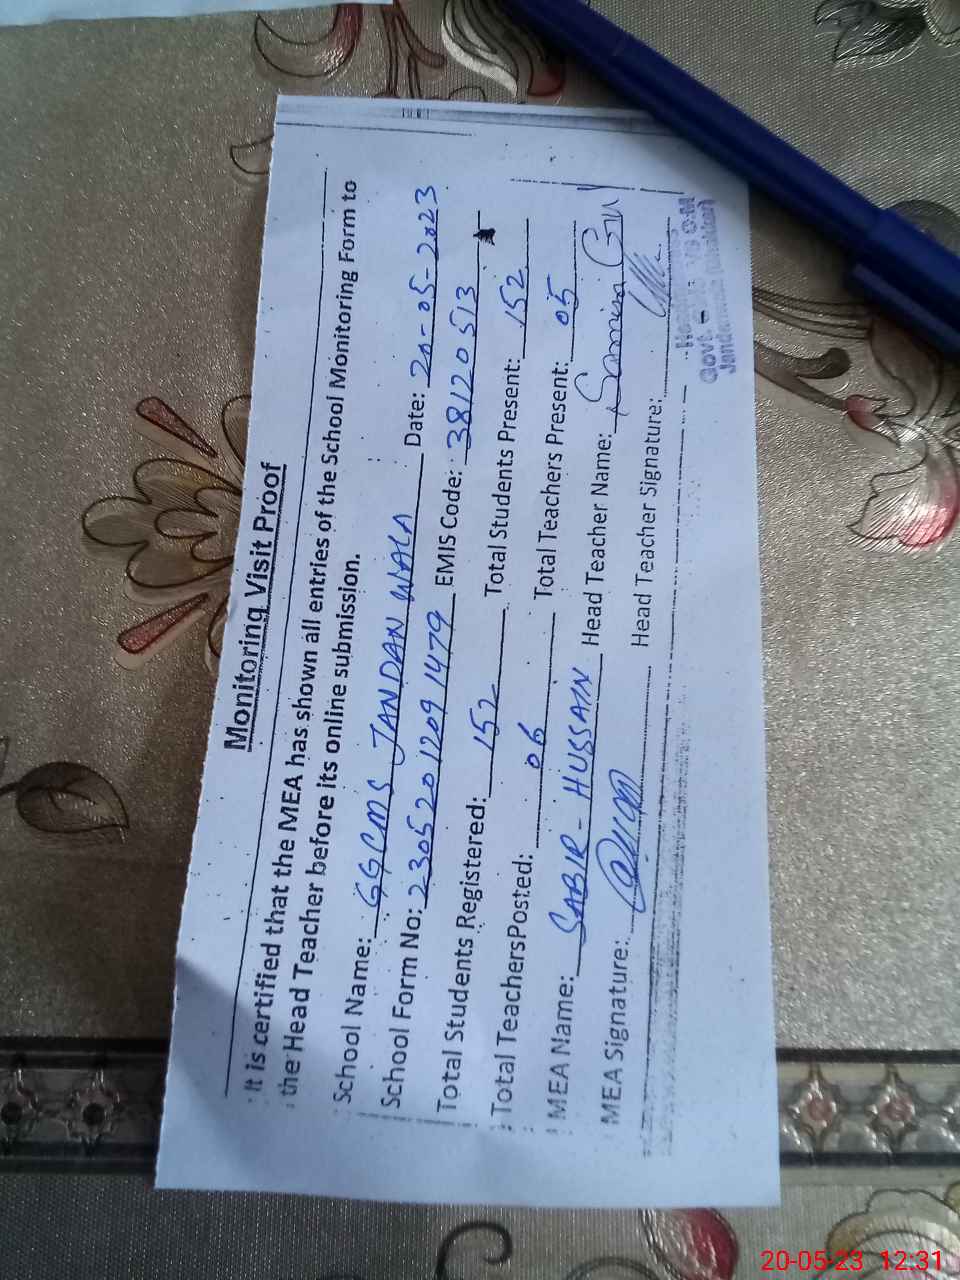 Monitoring Visit Proof
It is certified that the MEA has shown all entries of the School Monitoring Form to
the Head Teacher before its online submission.
School Name: GGCMS JANDAN WALA Date: 20-05-2023
School Form No: 230520 1209 1479 EMIS Code: 38120513
Total Students Registered: 152 Total Students Present: 152
Total TeachersPosted: 06 Total Teachers Present: 05
MEA Name: SABIR - HUSSAIN Head Teacher Name: Samina
MEA Signature: Head Teacher Signature:
Govt
20-05-23 12:31